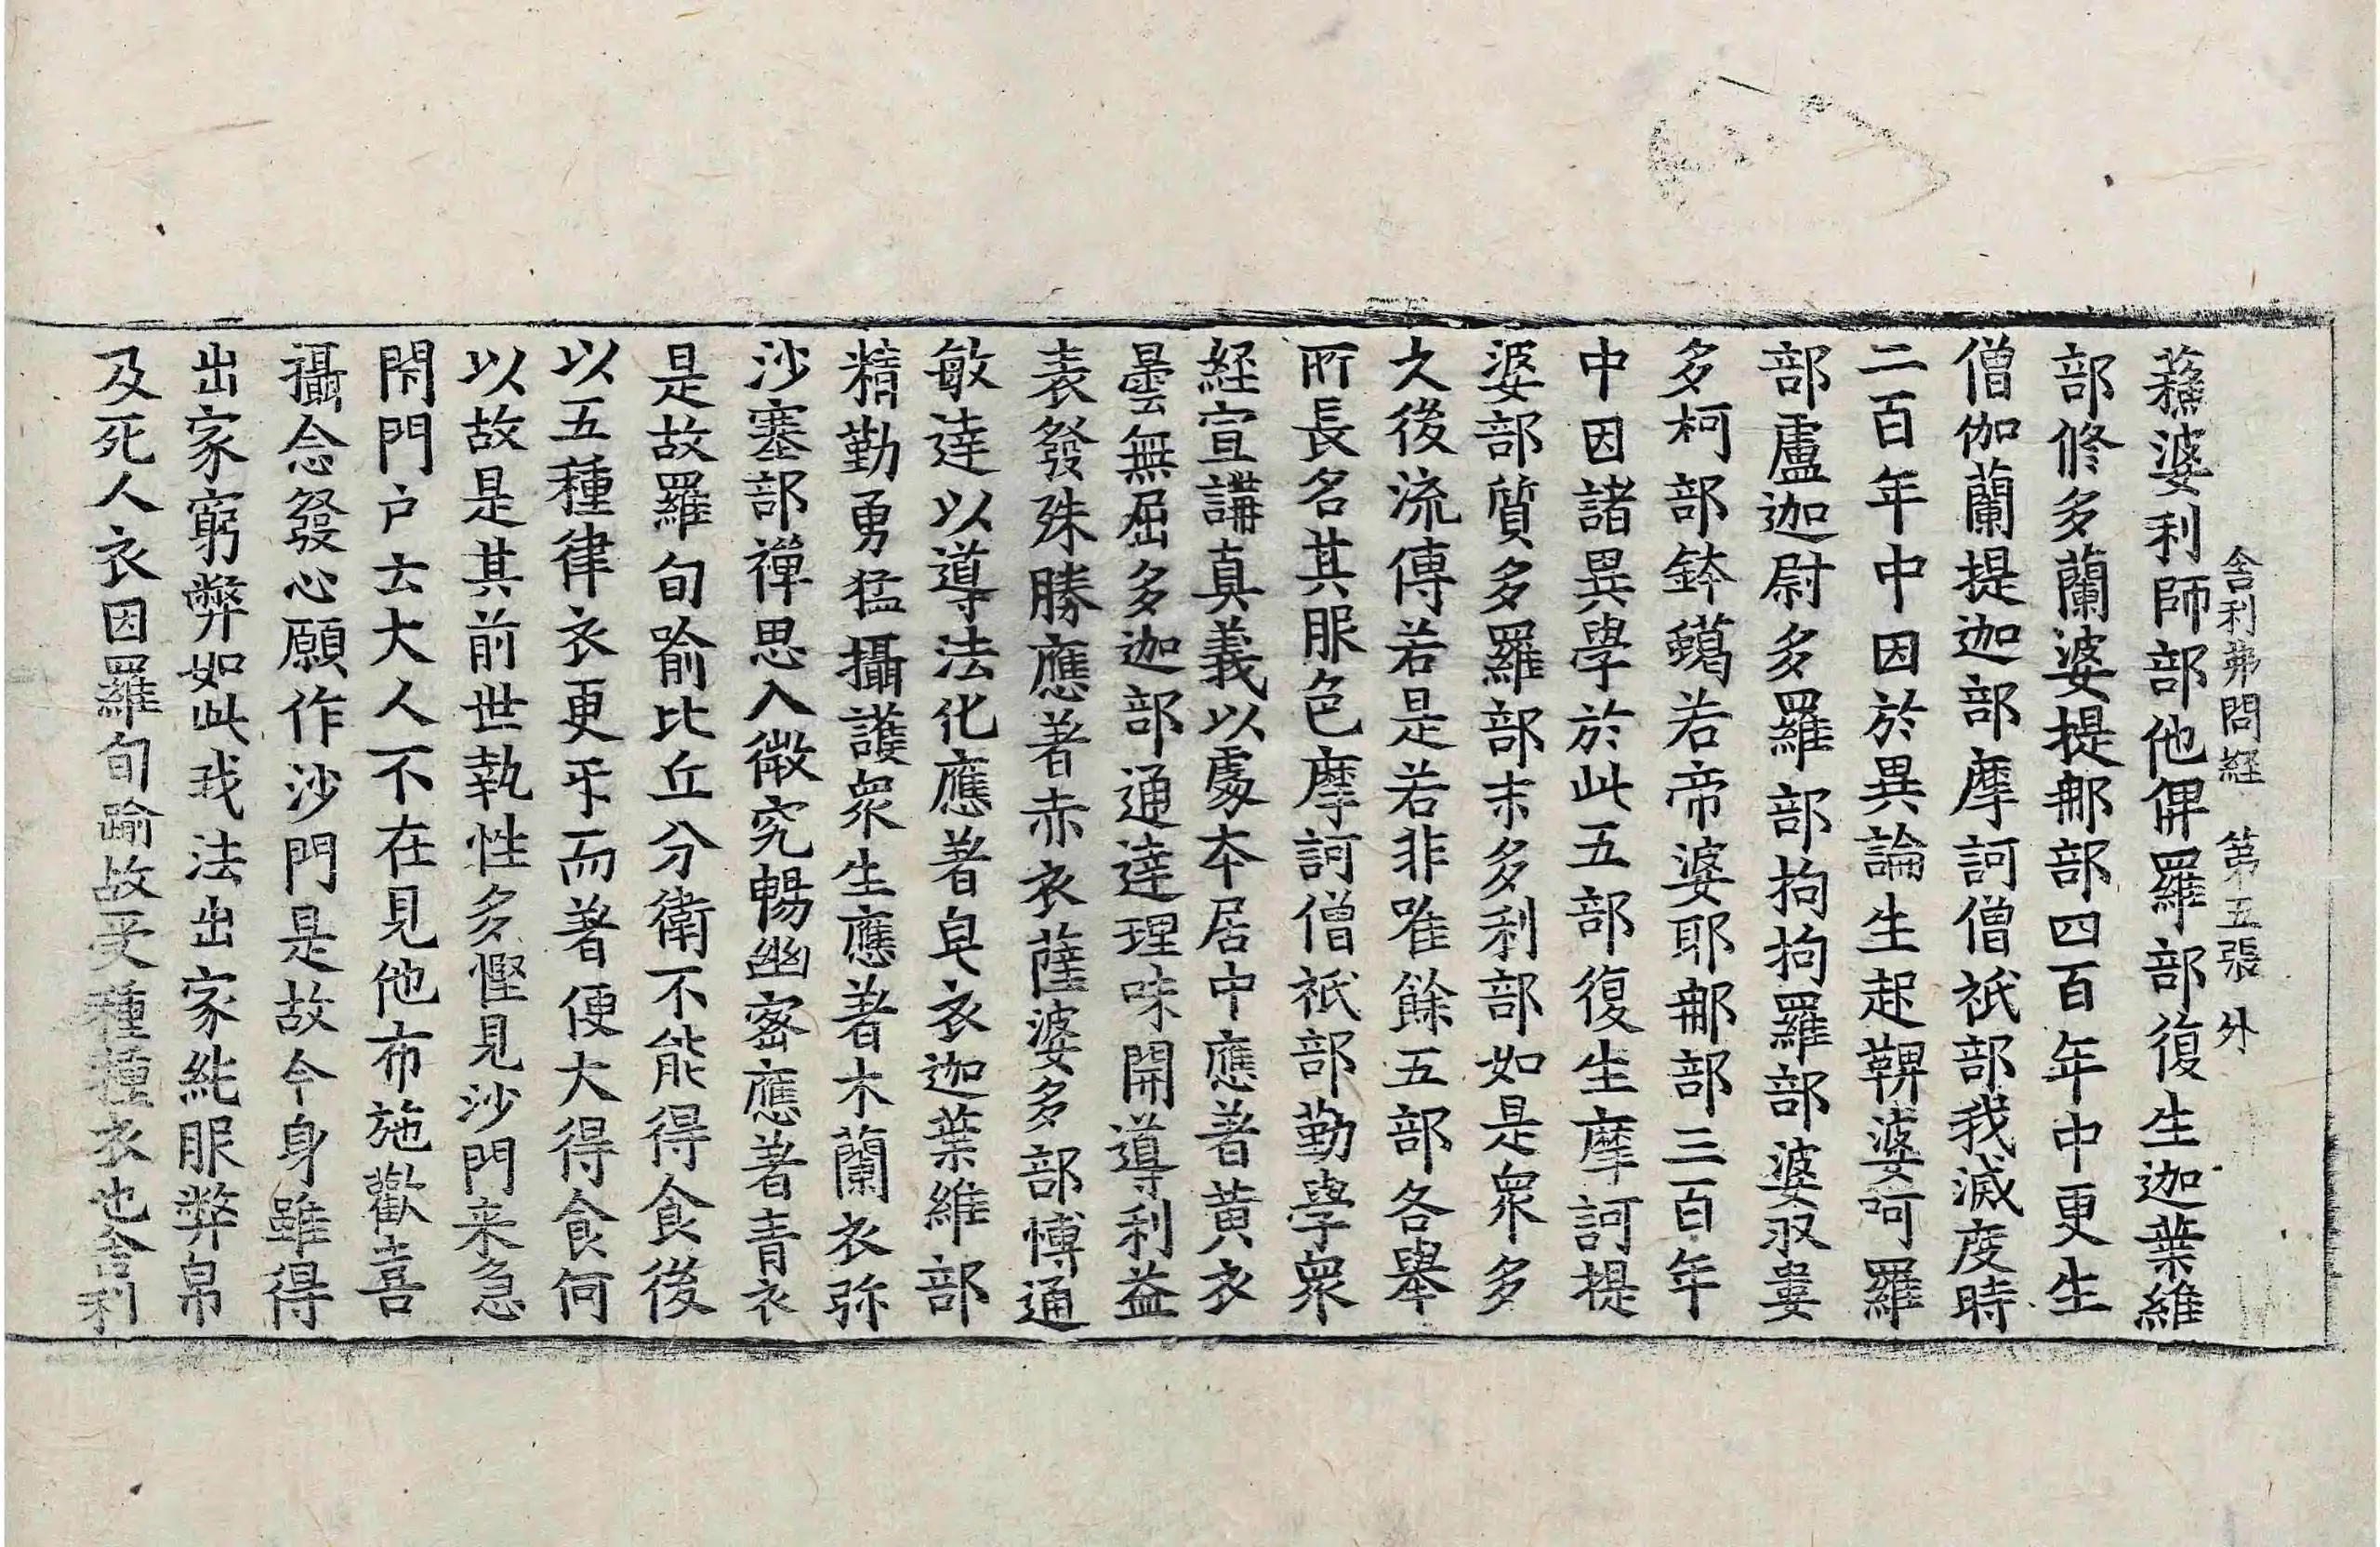 舍利弗問經 第五張 外
蘓婆利師部他俾羅部復生迦葉維
部修多蘭婆提那部四百年中更生
僧伽蘭提迦部摩訶僧祇部我滅度時
二百年中因於異論生起鞞婆呵羅
部盧迦尉多羅部拘拘羅部婆収婁
多柯部鉢蠲若帝婆耶那部三百年
中因諸異學於此五部復生摩訶提
婆部質多羅部末多利部如是衆多
久後流傳若是若非唯餘五部各舉
所長名其服色摩訶僧祇部勤學衆
經宣講真義以處本居中應著黄衣
曇無屈多迦部通達理味開導利益
表發殊勝應著赤衣薩婆多部博通
敏達以導法化應著皁衣迦葉維部
精勤勇猛攝護衆生應著木蘭衣弥
沙塞部禪思入微究暢幽密應著青衣
是故羅旬喻比丘分衛不能得食後
以五種律衣更㸦而著便大得食何
以故是其前世執性多慳見沙門来急
閇門户云大人不在見他布施歡喜
攝念發心願作沙門是故今身雖得
出家窮弊如此我法出家純服弊帛
及死人衣因羅旬踰故受種種衣也舍利